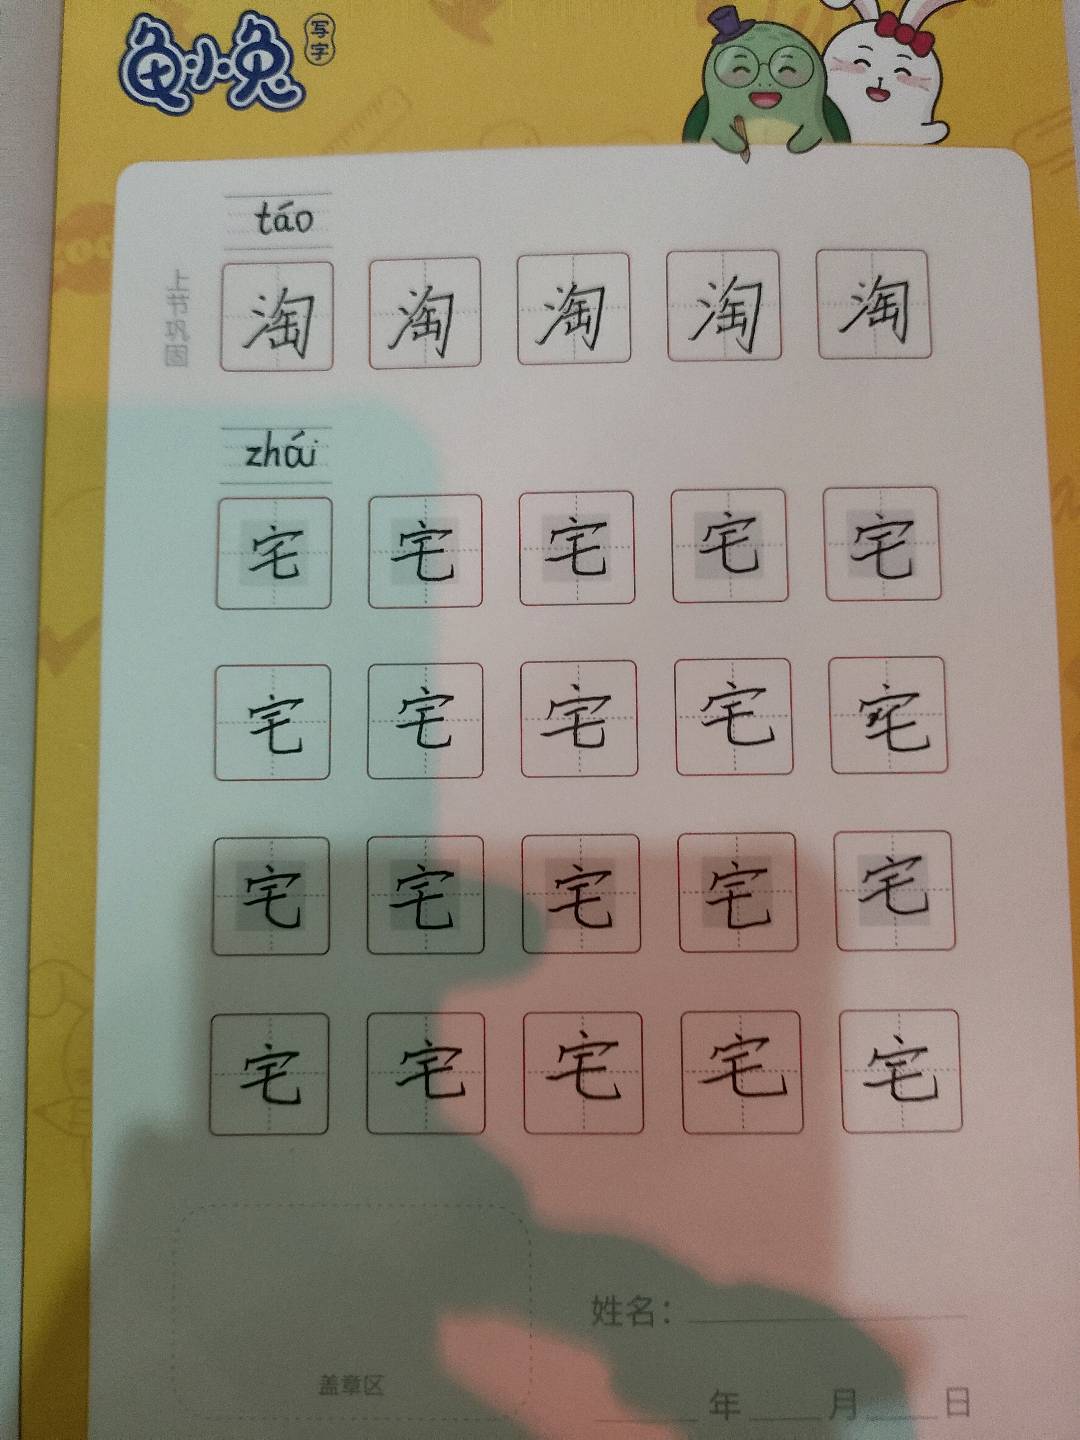 龟小兔
写字
táo
上节巩固
淘 淘 淘 淘 淘
zhái
宅 宅 宅 宅 宅
宅 宅 宅 宅 宅
宅 宅 宅 宅 宅
宅 宅 宅 宅 宅
姓名：
盖章区
年 月 日